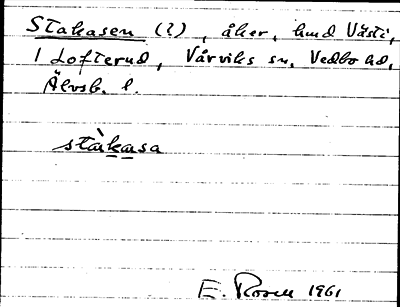 Stakasen (?), åker, hmd Västi,
1 Lofterud, Vårviks sn, Vedbo hd,
Älvsb. l.
stàkasa
E. Rosen 1961